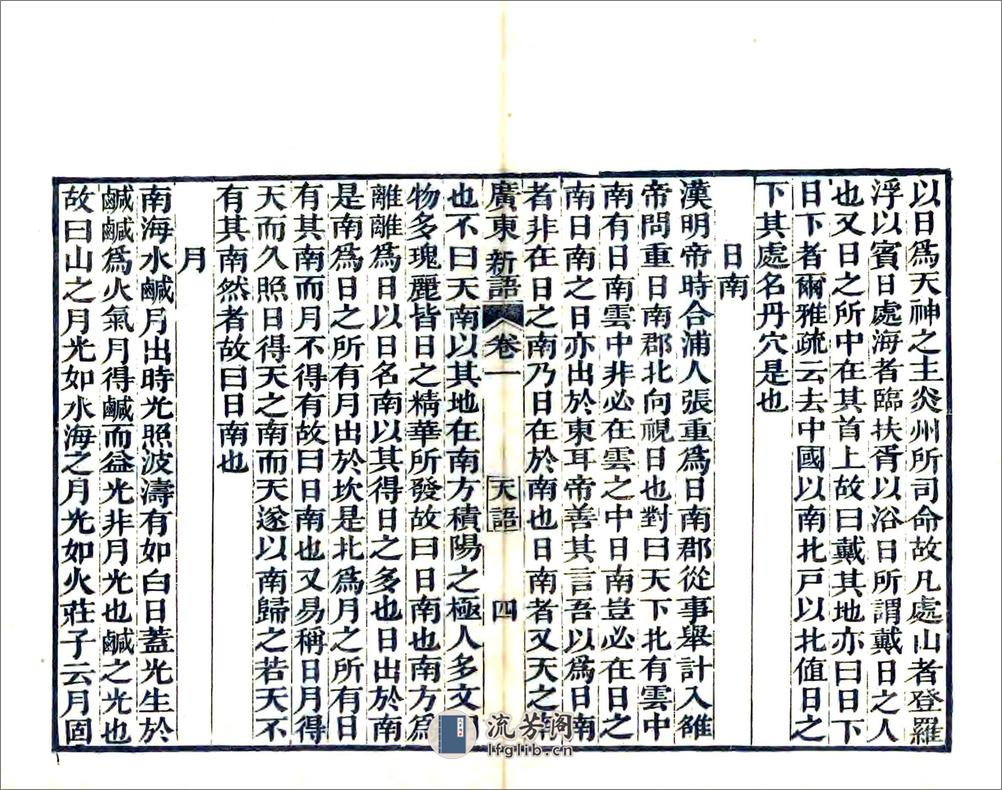 以日爲天神之主炎州所司命故凡處山者登羅
浮以賓日處海者臨扶胥以浴日所謂戴日之人
也又日之所中在其首上故曰戴其地亦曰日下
日下者爾雅疏云去中國以南北戶以北值日之
下其處名丹穴是也
日南
漢明帝時合浦人張重爲日南郡從事舉計入雒
帝問重日南郡北向視日也對曰天下北有雲中
南有日南雲中非必在雲之中日南豈必在日之
南日南之日亦出於東耳帝善其言吾以爲日南
者非在日之南乃日在於南也日南者又天之
廣東新語 卷一 天語 四
也不曰天南以其地在南方積陽之極人多文
物多瑰麗皆日之精華所發故曰日南也南方爲
離離爲日以日名南以其得日之多也日出於南
是南爲日之所有月出於坎是北爲月之所有日
有其南而月不得有故曰日南也又易稱日月得
天而久照日得天之南而天遂以南歸之若天不
有其南然者故曰日南也
月
南海水鹹月出時光照波濤有如白日蓋光生於
鹹鹹爲火氣月得鹹而益光非月光也鹹之光也
故曰山之月光如水海之月光如火莊子云月固
流芳阁
lfglib.cn